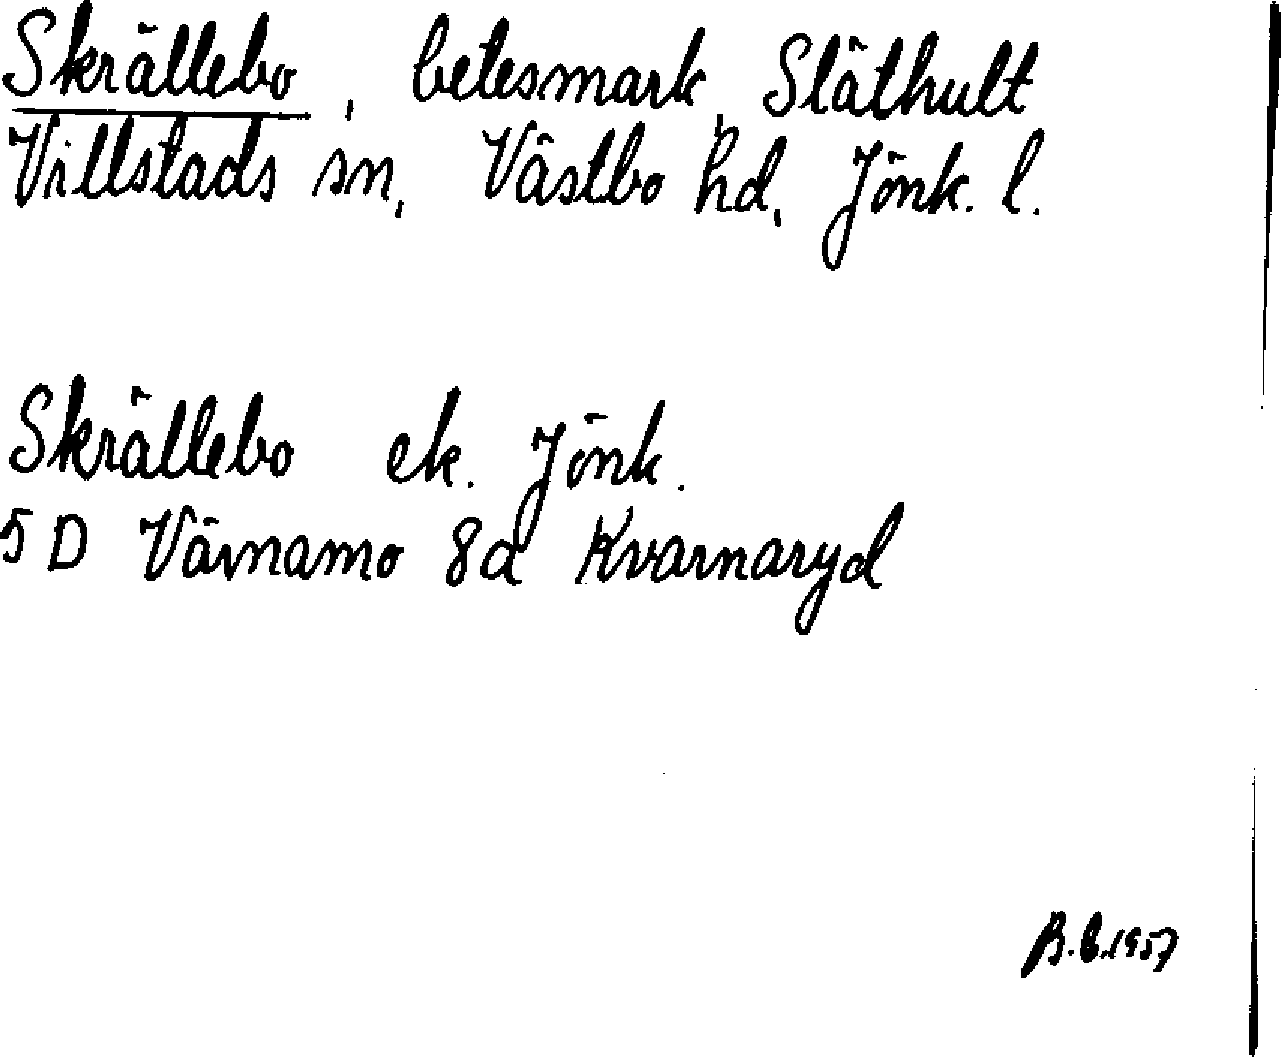 Skrällebo, betesmark, Släthult
Villstads sn, Västbo hd, Jönk. l.
Skrällebo ek. Jönk.
5 D Värnamo 8a Kvarnaryd
B.E.1957